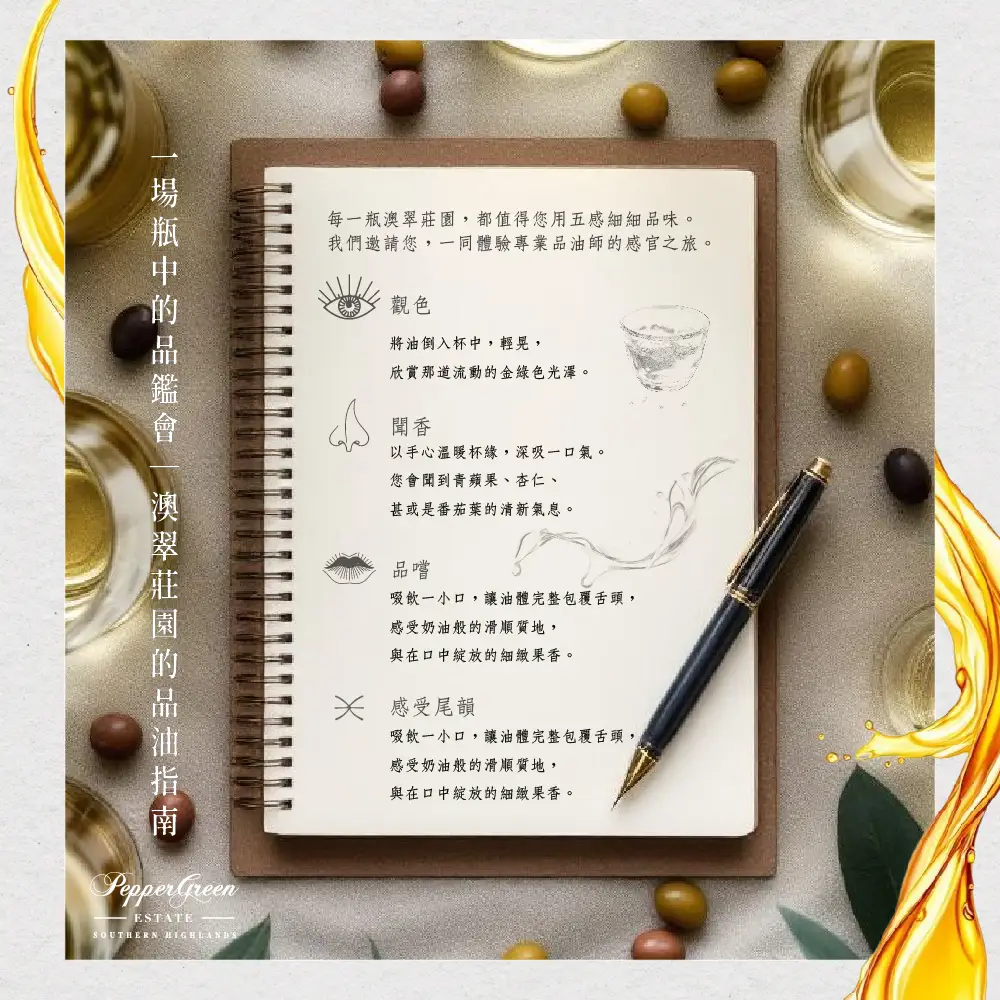 一場瓶中的品鑑會｜澳翠莊園的品油指南
每一瓶澳翠莊園，都值得您用五感細細品味。
我們邀請您，一同體驗專業品油師的感官之旅。
觀色
將油倒入杯中，輕晃，
欣賞那道流動的金綠色光澤。
聞香
以手心溫暖杯緣，深吸一口氣。
您會聞到青蘋果、杏仁、
甚或是番茄葉的清新氣息。
品嚐
啜飲一小口，讓油體完整包覆舌頭，
感受奶油般的滑順質地，
與在口中綻放的細緻果香。
感受尾韻
啜飲一小口，讓油體完整包覆舌頭，
感受奶油般的滑順質地，
與在口中綻放的細緻果香。
PepperGreen
ESTATE
SOUTHERN HIGHLANDS